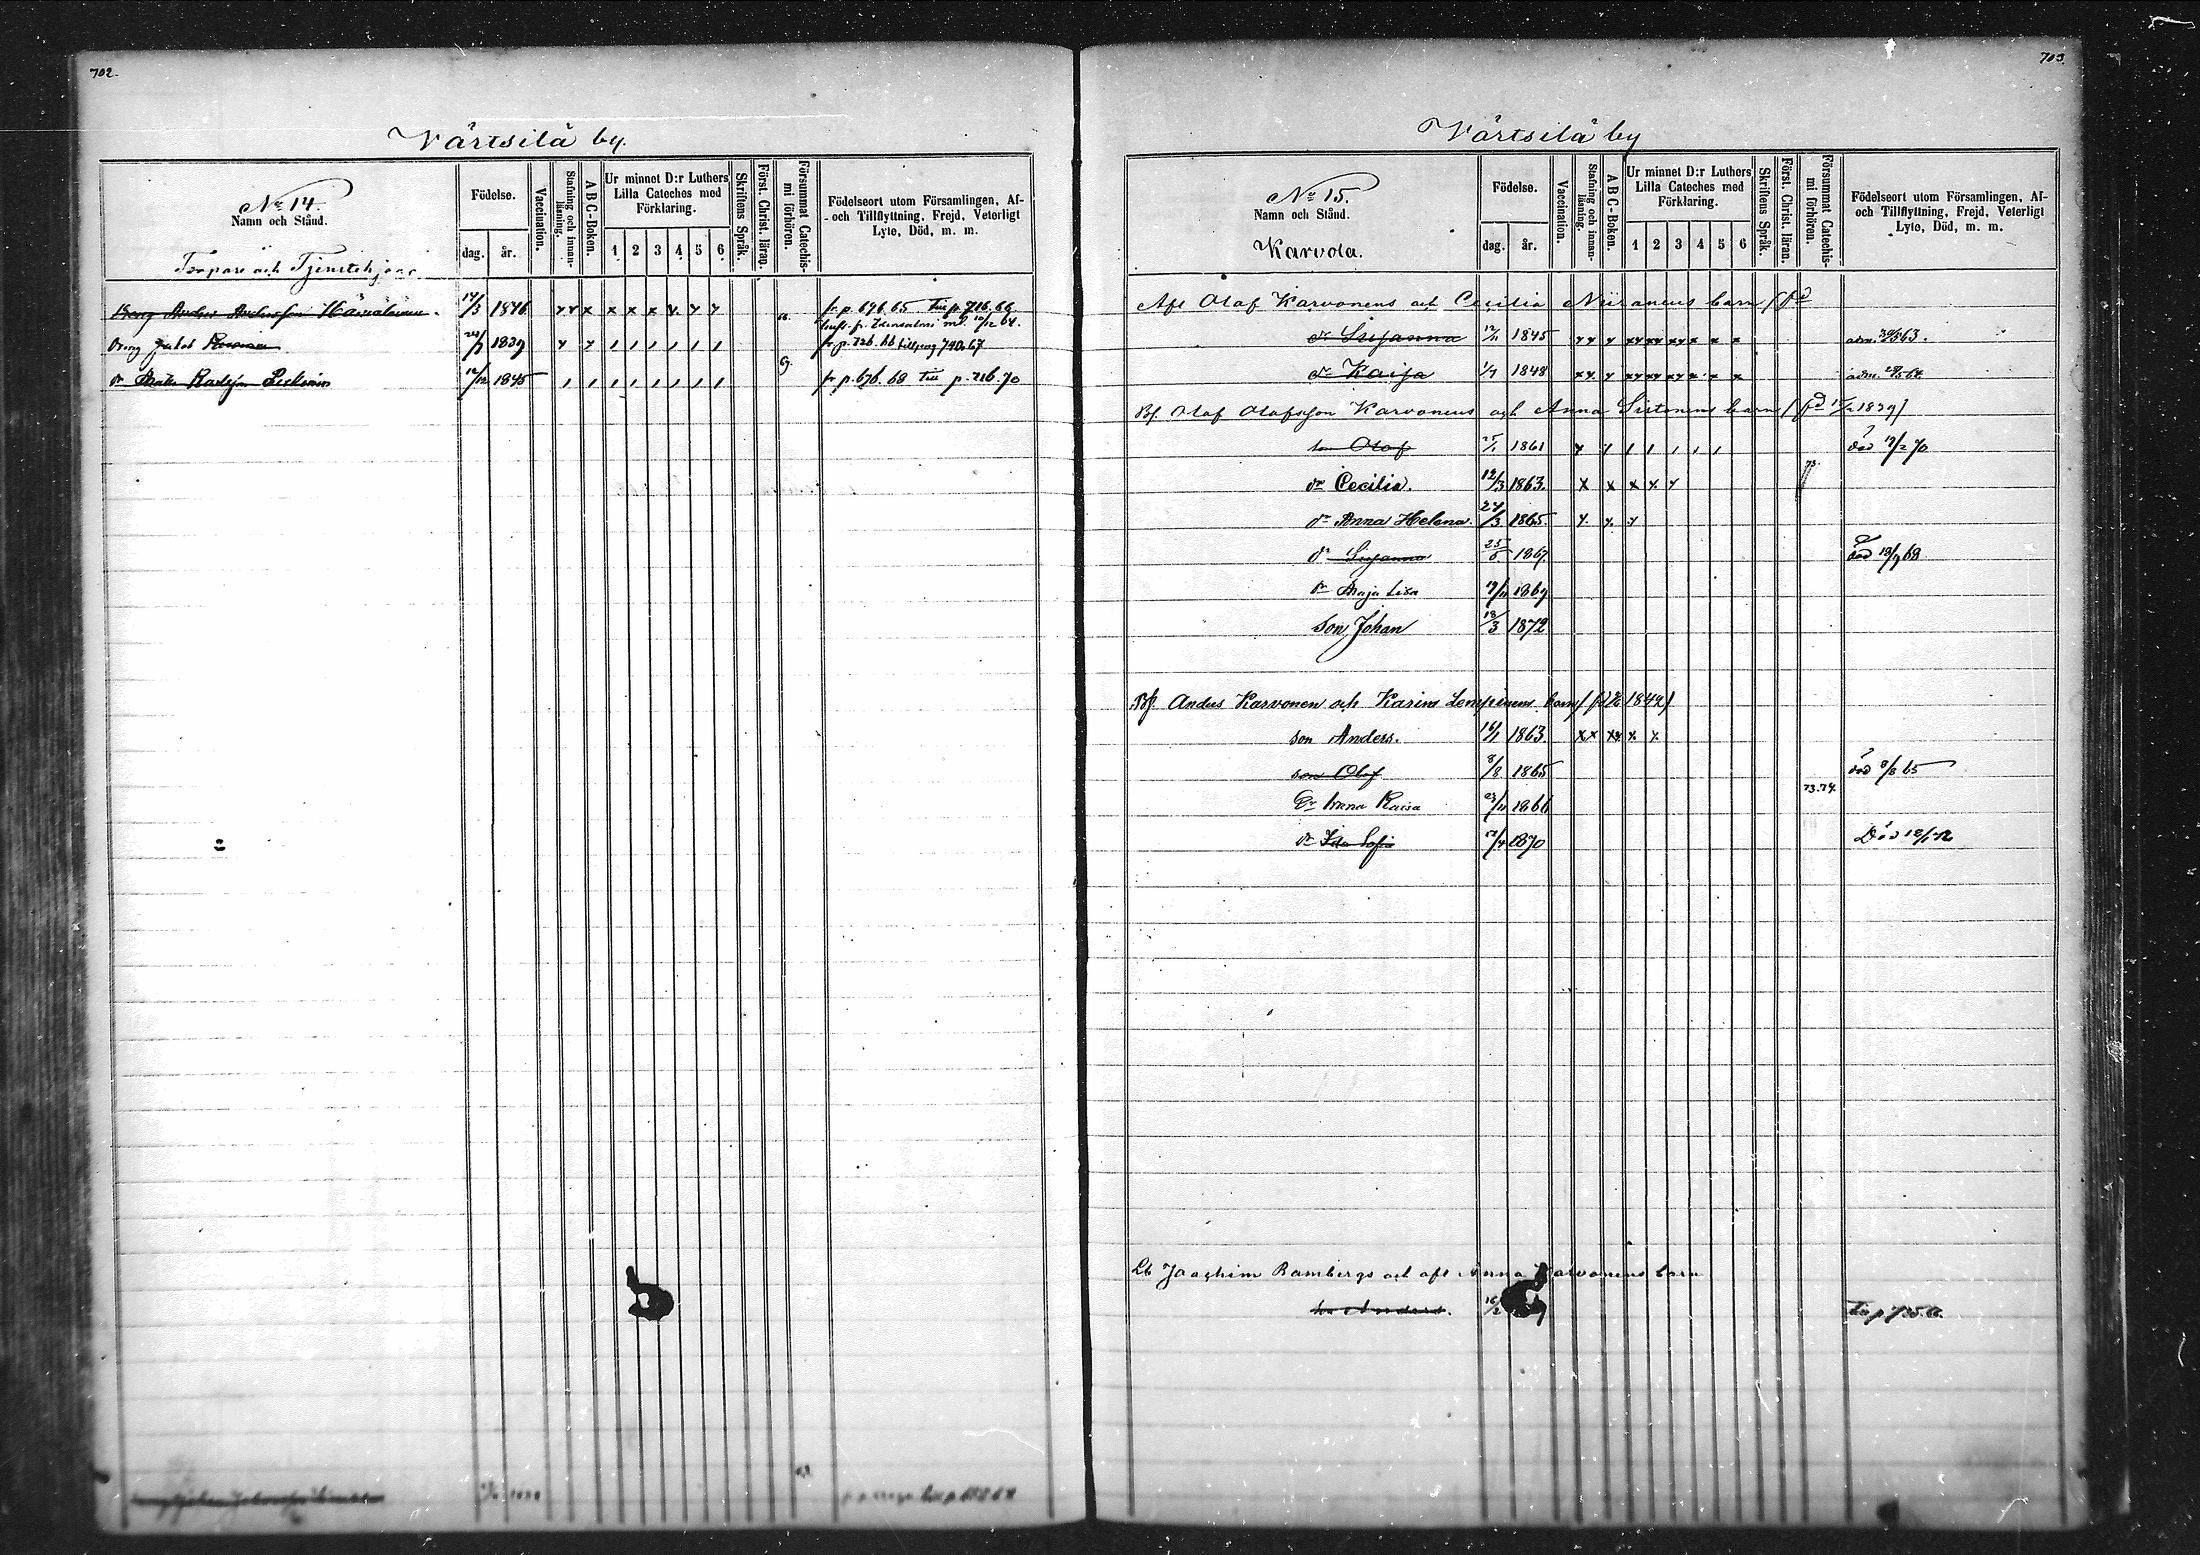 702.
Värtsilä by.
No 14.
Namn och Stånd.
Födelse.
dag.
år.
Vaccination.
Stafning och innanläsning.
A B C-Boken.
Ur minnet D:r Luthers Lilla Cateches med Förklaring.
1 2 3 4 5 6
Skriftens Språk.
Först. Christ. läran.
Försummat Catechismi förhören.
Födelseort utom Församlingen, Af- och Tillflyttning, Frejd, Veterligt Lyte, Död, m. m.
Torpare och Tjenstehjon
Dreng Anders Andersson 14/3 1846 fr p. 676. 65 till p. 716. 66
Dreng Jakob 1839 fr. p. 726. 66 till pag 740. 67
12/12 1845 fr p. 676. 68 till p. 716. 70
703.
Värtsilä by
No 15.
Namn och Stånd.
Karvola.
Födelse.
dag.
år.
Vaccination.
Stafning och innanläsning.
A B C-Boken.
Ur minnet D:r Luthers Lilla Cateches med Förklaring.
1 2 3 4 5 6
Skriftens Språk.
Först. Christ. läran.
Försummat Catechismi förhören.
Födelseort utom Församlingen, Af- och Tillflyttning, Frejd, Veterligt Lyte, Död, m. m.
Afl Olaf Karvonens och Cecilia Niiranens barn
dr Susanna 12/11 1845
dr Kaisa 1/7 1848
Bf. Olaf Olafsson Karvonens och Anna Sistonens barn 1839)
son Olof 25/1 1861 död 17/2 70
dr Cecilia. 12/3 1863. 73.
dr Anna Helena. 24/3 1865.
dr Susanna 25/5 1867. död 18/7 68
dr Maja Lisa 17/11 1869
Son Johan 18/3 1872
Bf. Anders Karvonen och Karins Lempinens barn 1842)
son Anders. 16/1 1863.
son Olof 8/8 1865 död 8/8 65
73.74.
Dr Anna Kaisa 23/11 1866
dr Ida Sofia 17/4 1870 Död
Joachim Rambergs och afl Anna Karvonens barn
Anders. 16/2